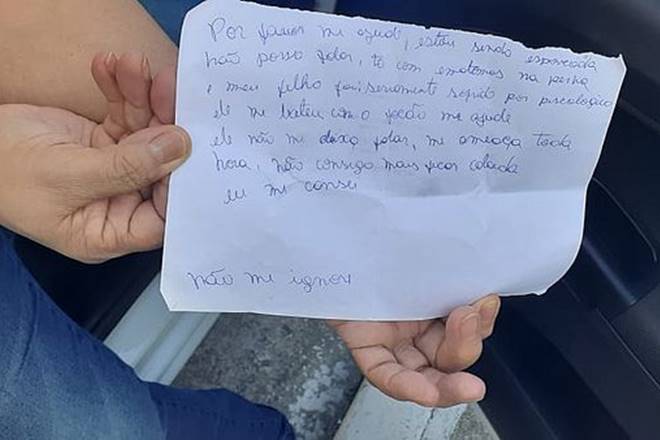 Por favor me ajude, estou sendo espancada
não posso falar, to com ematomas na perna
e meu filho foi seriamente por piscologico
ele me bateu com o facão me ajude
ele não me deixa falar, me ameaça toda
hora, não consigo mais ficar calada
eu me cansei
não me ignore